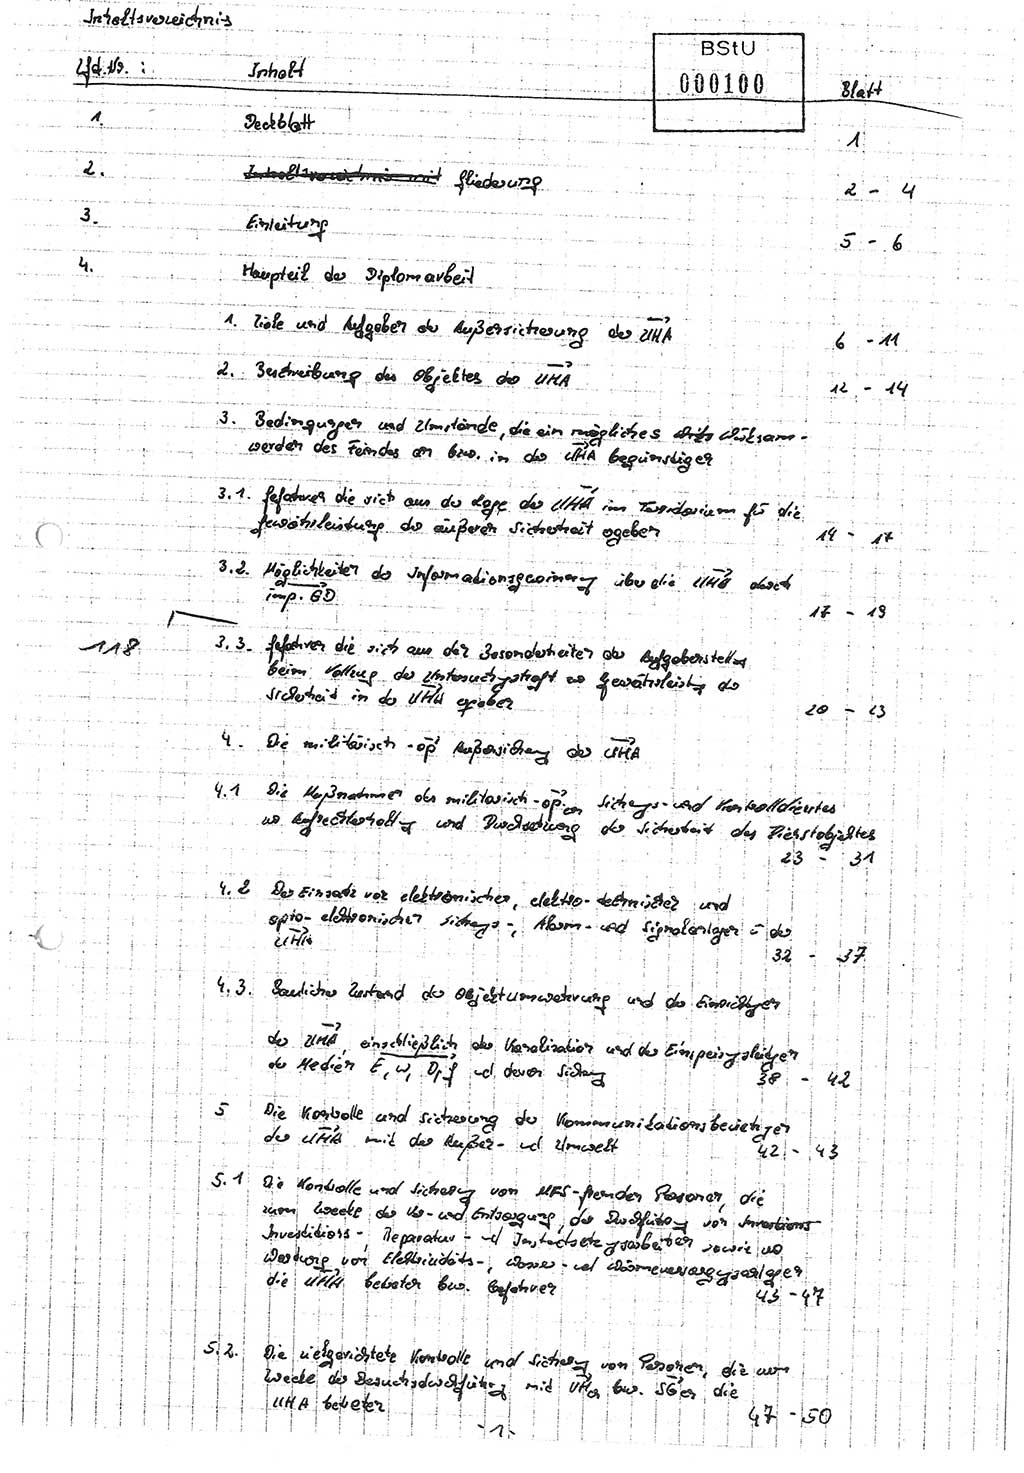 Inhaltsverzeichnis
BStU
000100
Lfd. Nr. : Inhalt Blatt
1. Deckblatt 1
2. Inhaltsverzeichnis mit Gliederung 2 - 4
3. Einleitung 5 - 6
4. Hauptteil der Diplomarbeit
1. Ziele und Aufgaben der Außensicherung der UHA 6 - 11
2. Beschreibung des Objektes der UHA 12 - 14
3. Bedingungen und Umstände, die ein mögliches Wirksam-
werden des Feindes an bzw. in der UHA begünstigen
3.1. Gefahren die sich aus der Lage der UHA im Territorium für die
Gewährleistung der äußeren Sicherheit ergeben 14 - 17
3.2. Möglichkeiten der Informationsgewinnung über die UHA durch
imp. GD 17 - 19
118
3.3. Gefahren die sich aus den Besonderheiten der Aufgabenstellung
beim Vollzug der Untersuchungshaft zur Gewährleistung der
Sicherheit in der UHA ergeben 20 - 23
4. Die militärisch-op. Außensicherung der UHA
4.1 Die Maßnahmen des militärisch-op. Sicherungs- und Kontrolldienstes
zur Aufrechterhaltung und Durchsetzung der Sicherheit des Dienstobjektes
23 - 31
4.2 Der Einsatz von elektronischen, elektro-technischen und
opto-elektronischen Sicherungs-, Alarm- und Signalanlagen in der
UHA 32 - 37
4.3. Baulicher Zustand der Objektumwehrung und der Einrichtungen
der UHA einschließlich der Kanalisation und der Einspeisungsleitungen
der Medien E, W, D, G und deren Sicherung 38 - 42
5 Die Kontrolle und Sicherung der Kommunikationsbeziehungen
der UHA mit der Außen- und Umwelt 42 - 43
5.1 Die Kontrolle und Sicherung von MfS-fremden Personen, die
zum Zwecke der Ver- und Entsorgung, der Durchführung von Investitions
Investitions-, Reparatur- und Instandsetzungsarbeiten sowie zur
Wartung von Elektrizitäts-, Wasser- und Wärmeversorgungsanlagen
die UHA betreten bzw. befahren 43 - 47
5.2. Die zielgerichtete Kontrolle und Sicherung von Personen, die zum
Zwecke der Besuchsdurchführung mit VHen bzw. SGen die
UHA betreten 47 - 50
- 1 -